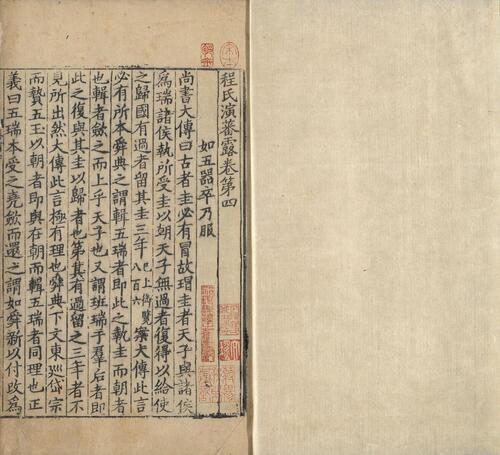 程氏演蕃露卷第四
如五器卒乃服
尚書大傳曰古者圭必有冒故瑁圭者天子與諸侯
為瑞諸侯執所受圭以朝天子無過者復得以給使
之歸國有過者留其圭三年已上御覽八百六案大傳此言
必有所本舜典之謂輯五瑞者即此之執圭而朝者
也輯者斂之而上乎天子也又謂班瑞于羣后者即
此之復與其圭以歸者也第其有過留之三年者不
見所出然大傳此言極有理也舜典下文東廵岱宗
而贄五玉以朝者即與在朝而輯五瑞者同理也正
義曰五瑞本受之堯斂而還之謂如舜新以付改為